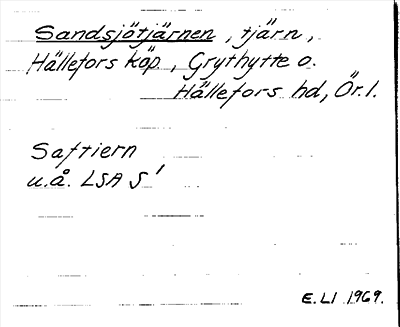 Sandsjötjärnen, tjärn,
Hällefors köp., Grythytte o.
Hällefors hd, Ör. l.
Saftiern
u.å. LSA S'
E.LI 1969.